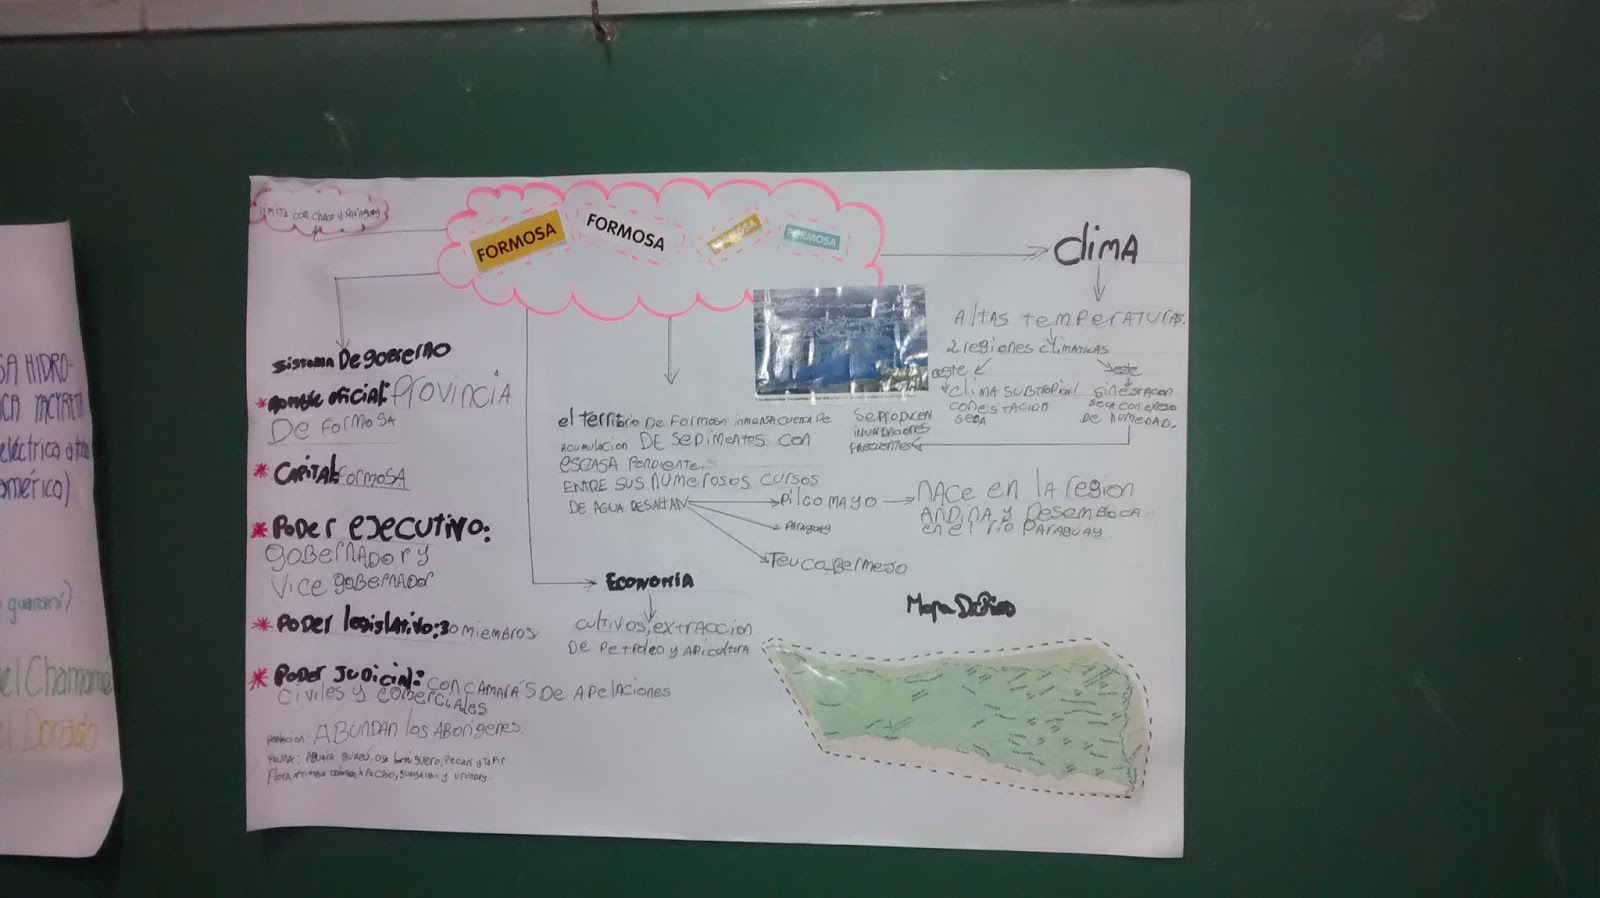 LIMITA CON CHACO Y PARAGUAY
FORMOSA
FORMOSA
FORMOSA
FORMOSA
sistema De goBierno
*nombre oficial: Provincia
De FormosA
* CAPital: FormoSA
* PoDer ejecutivo:
GoBerNADor y
Vice goBerNADor
* PoDer legislativo: 30 miemBros
* PoDer JuDicial: con CAMARAS De Apelaciones
civiles y comerciales
PoBlacion: ABUNDAN los ABorigenes.
FAUNA: AguarÁ guazú, oso hormiguero, Pecari y tapir
Flora:
lapacho, guayaibi y urunday.
el territorio De FormosA inmensa cuenca De
acumulacion DE SeDimentos con
escasa PenDiente.
ENTRE SUS NUMEROSOS CURSOS
DE AGUA DESALTAN
Pilcomayo
Paraguay
Teuco, Bermejo
NACE en la region
ANDINA y DesemBoca
en el rio PARAGUAY.
ECONOMíA
cultivos, extraccion
De Petroleo y APicultura
climA
Altas temperaturas.
2 regiones climaticas
oeste
clima suBtropical
con estacion
seca
este
sin estacion
seca con exceso
De HumeDAD.
Se ProDucen
inunDaciones
frecuentes
Mapa
SA HIDRO-
ICA YACYRETÁ
eléctrica a
omérico)
guaraní)
el Chamamé
l Dorado